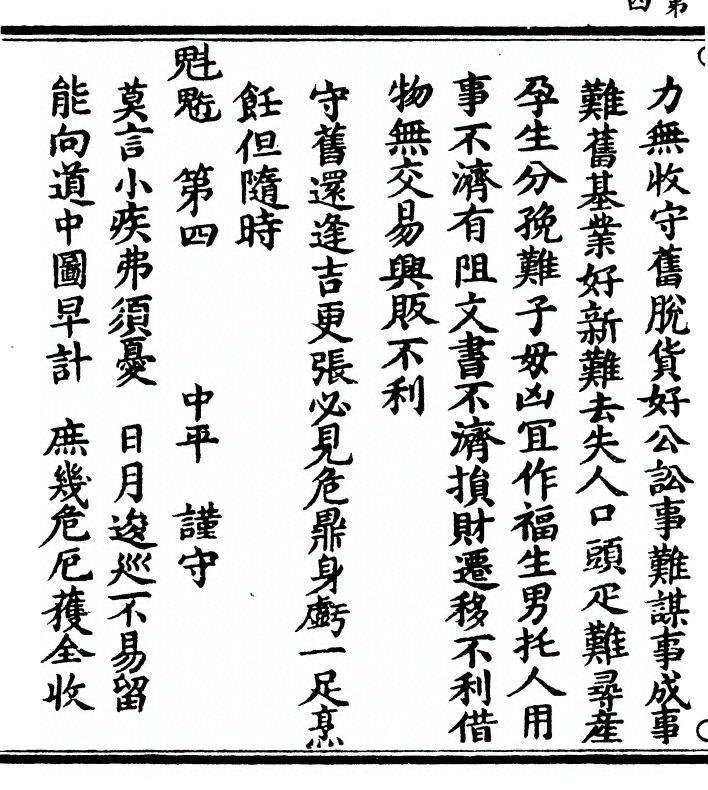 力無收守舊脫貨好公訟事難謀事成事
難舊基業好新難去失人口頭疋難尋產
孕生分娩難子毋凶宜作福生男托人用
事不濟有阻文書不濟損財遷移不利借
物無交易興販不利
守舊還逢吉更張必見危鼎身虧一足烹
飪但隨時
第四 中平 謹守
莫言小疾弗須憂 日月逡巡不易留
能向道中圖早計 庶幾危厄獲全收